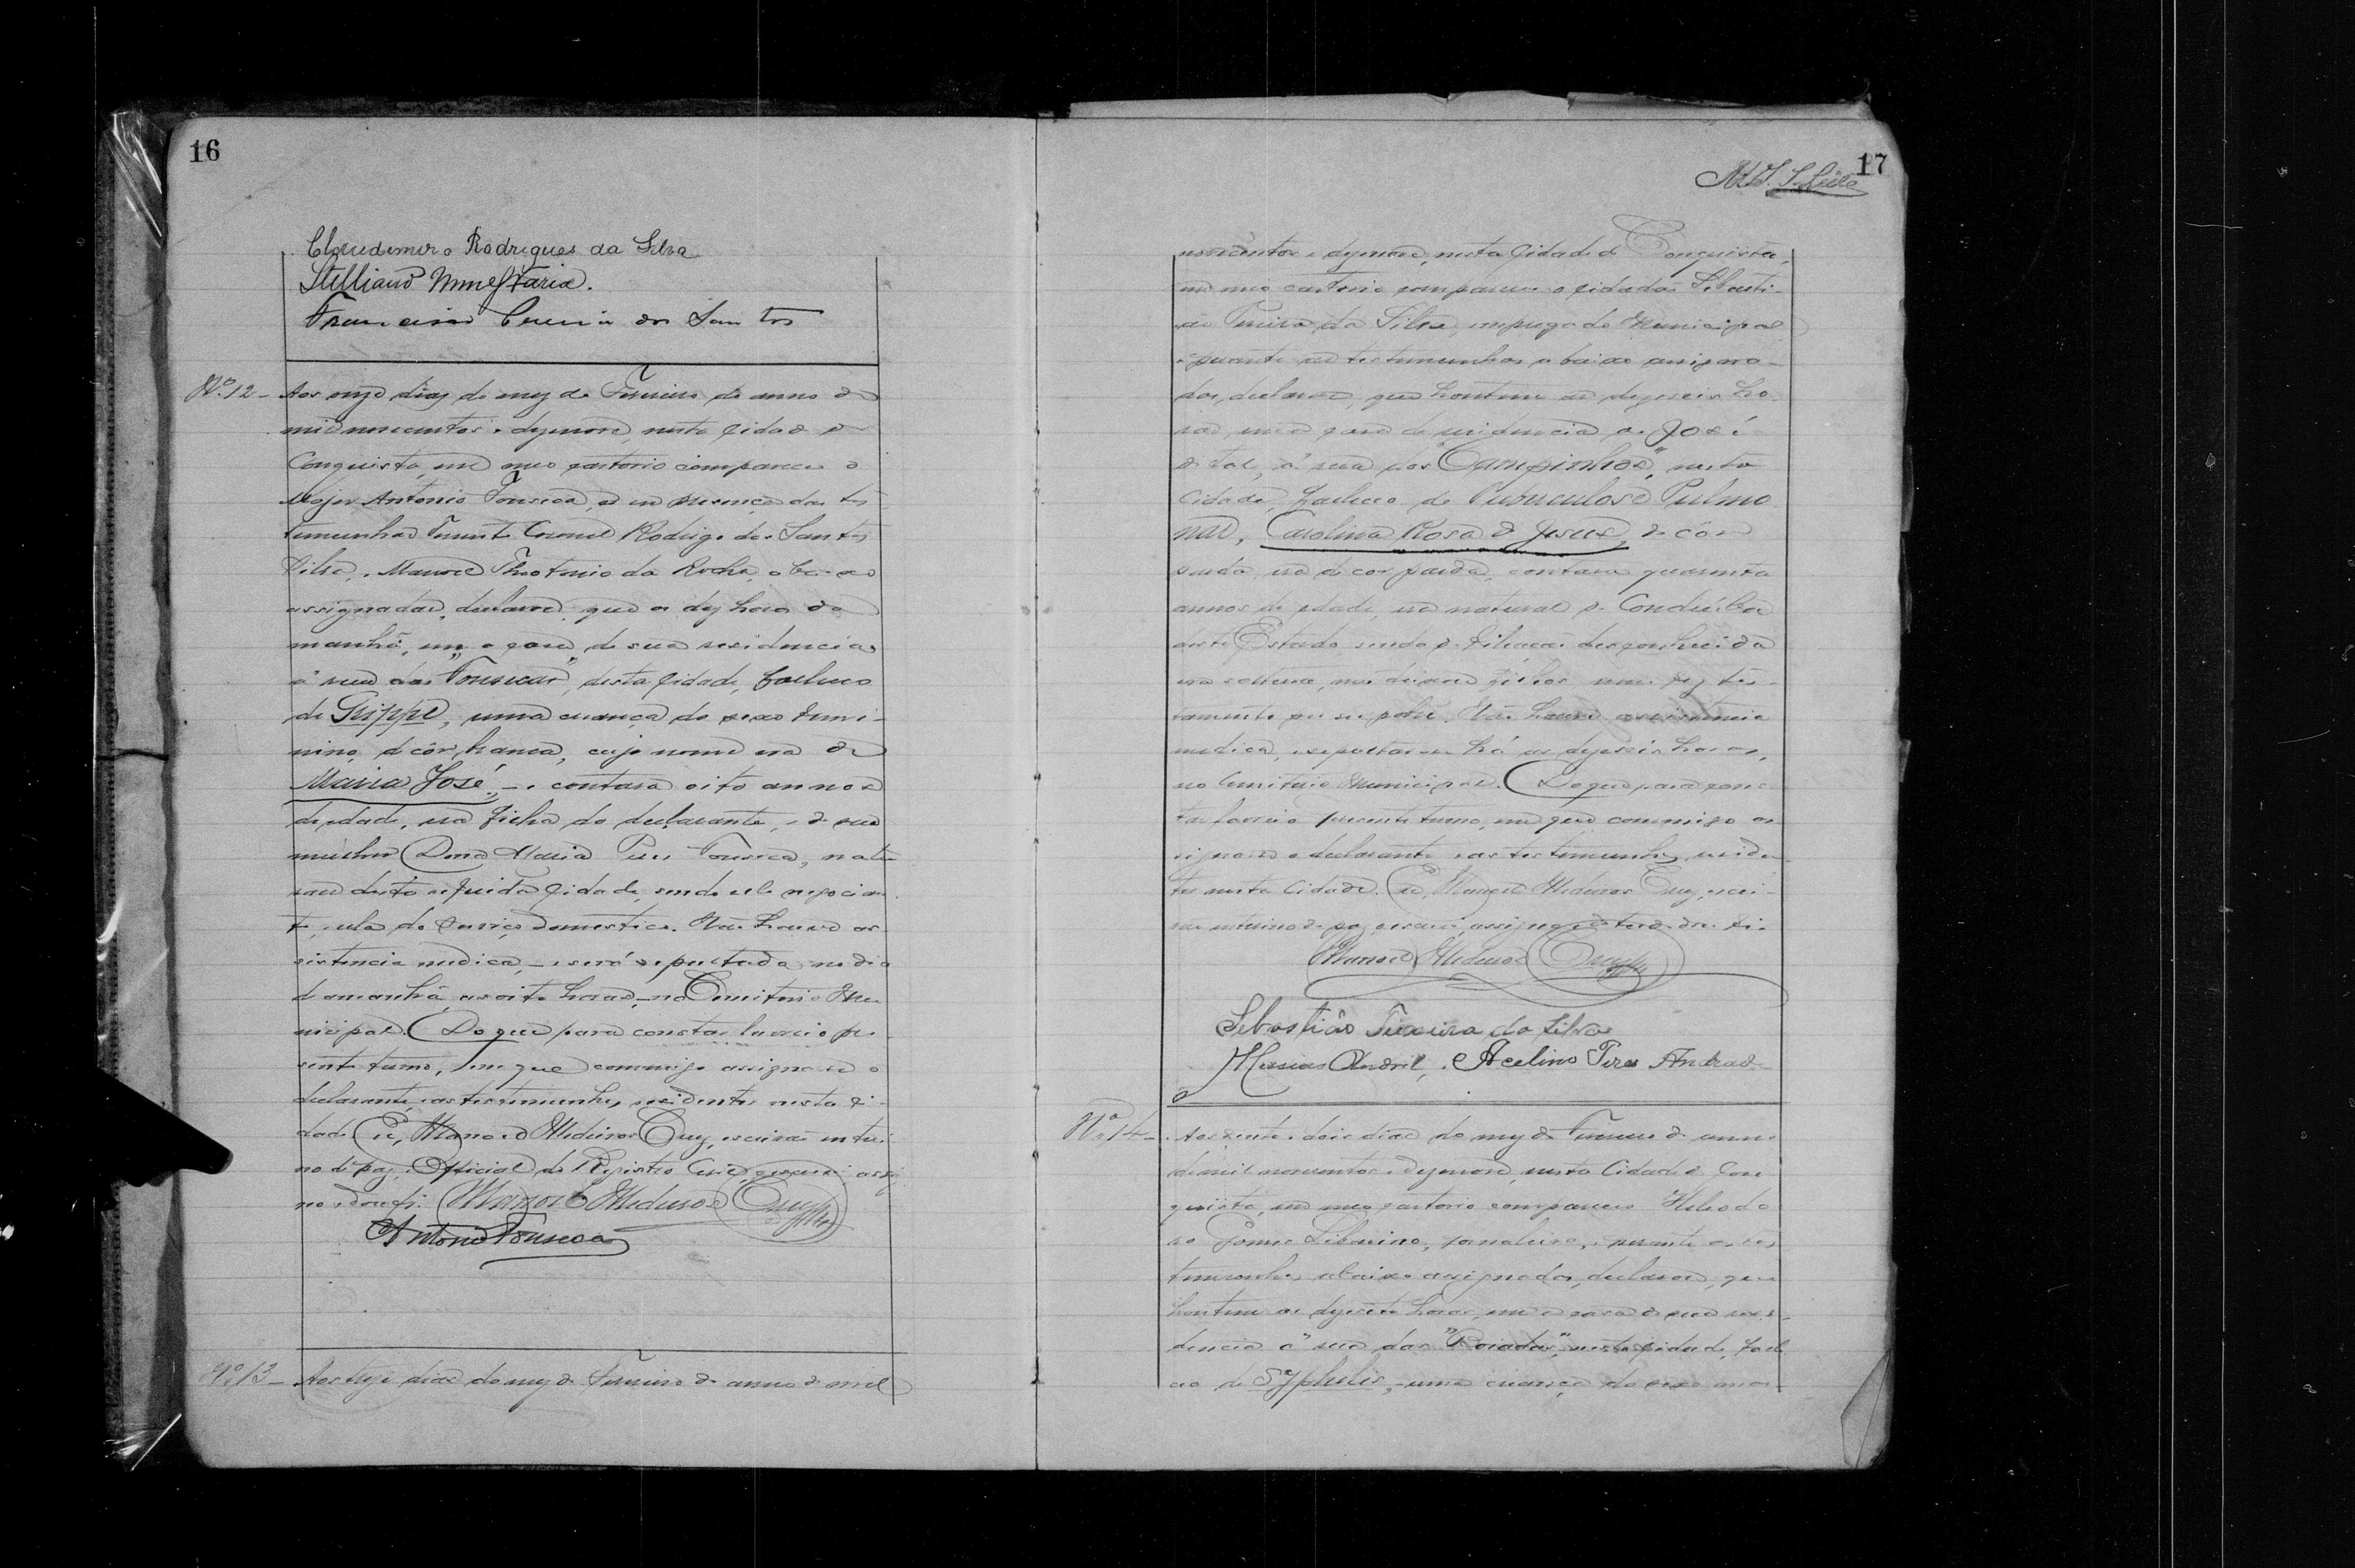 16
Claudemiro Rodrigues da Silva
Stelliano
Francisco dos Santos
Nº 12 - Aos onze dias do mez de Fevereiro do anno de
mil novecentos e dezenove, nesta cidade de
Conquista, em meo cartorio compareceu o
Major Antonio Fonseca, e em presença das tes
temunhas Tenente Coronel Rodrigo dos Santos
Silva, e Manoel Theotonio da Rocha, abaixo
assignadas, declarou que as dez horas da
manhã, em a casa de sua residencia
á rua dos "Fonsecas", desta cidade, falleceo
de Grippe, uma creança do sexo femi-
nino, de côr branca, cujo nome era de
Maria José, - e contava oito annos
de edade, era filha do declarante, e de sua
mulher Dona Maria Fonseca, natu
raes desta referida cidade, sendo elle negocian
te, ella do serviço domestico. Não houve as-
sistencia medica, - e será sepultada no dia
de amanhã as oito horas, - no Cemiterio Mu
nicipal. Do que para constar lavrei o pre
sente termo, em que commigo assignou o
declarante, e as testemunhas, residentes nesta ci-
dade. Eu, Manoel Medeiros Cruz, escrivão interi-
no de paz, e Official do Registro Civil, escrevi assig
no e dou fé. Manoel Medeiros Cruz
Antonio Fonseca
Nº 13 - Aos dias do mez de Fevereiro do anno de mil
17
novecentos e dezenove, nesta cidade de Conquista,
em meo cartorio compareceu o cidadão Sebasti-
ão da Silva, empregado Municipal
e perante as testemunhas abaixo assigna-
das, declarou, que hontem as dezeseis ho
ras, em a casa de residencia de José
de tal, á rua dos "Campinhos", nesta
Cidade, falleceo de Tuberculose Pulmo
nar, Carolina Rosa de Jesus, de côr
parda, era de cor parda, contava quarenta
annos de edade, era natural de Condeúba
deste Estado sendo de filiação desconhecida
era solteira, não deixou filhos nem fez tes-
tamento por ser pobre. Não houve assistencia
medica, e sepultar-se-há as dezeseis horas,
no Cemiterio Municipal. Do que para cons
tar lavrei o presente termo, em que commigo as
signou o declarante e as testemunhas residen
tes nesta Cidade. Eu, Manoel Medeiros Cruz, escri-
vão interino de paz, escrevi, assigno e dou fé.
Manoel Medeiros Cruz
Sebastião Teixeira da Silva
Messias Andril, Acelino Pires Andrade
Nº 14 - Aos vinte e dois dias do mez de Fevereiro do anno
de mil novecentos e dezenove, nesta Cidade de Con
quista, em meo cartorio compareceu Heliodo
ro Gomes Liborino, jornaleiro, e perante as tes
temunhas abaixo assignadas, declarou, que
hontem as horas, em a casa de sua resi-
dencia á rua das "Boiadas", nesta cidade, falle
ceo de Syphilis, - uma creança do sexo mas